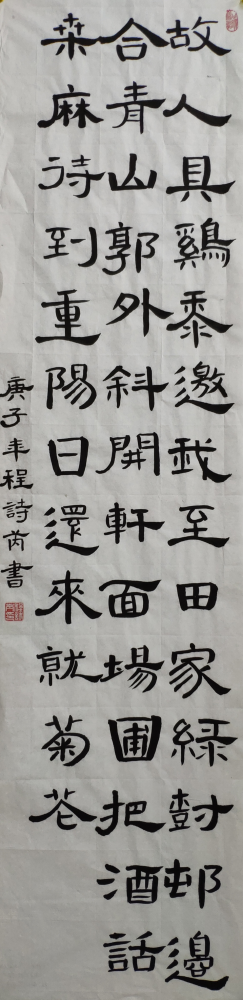 故人具鷄黍邀我至田家緑樹邨邊
合青山郭外斜開軒面場圃把酒話
桒麻待到重陽日還來就菊花
庚子年程詩芮書